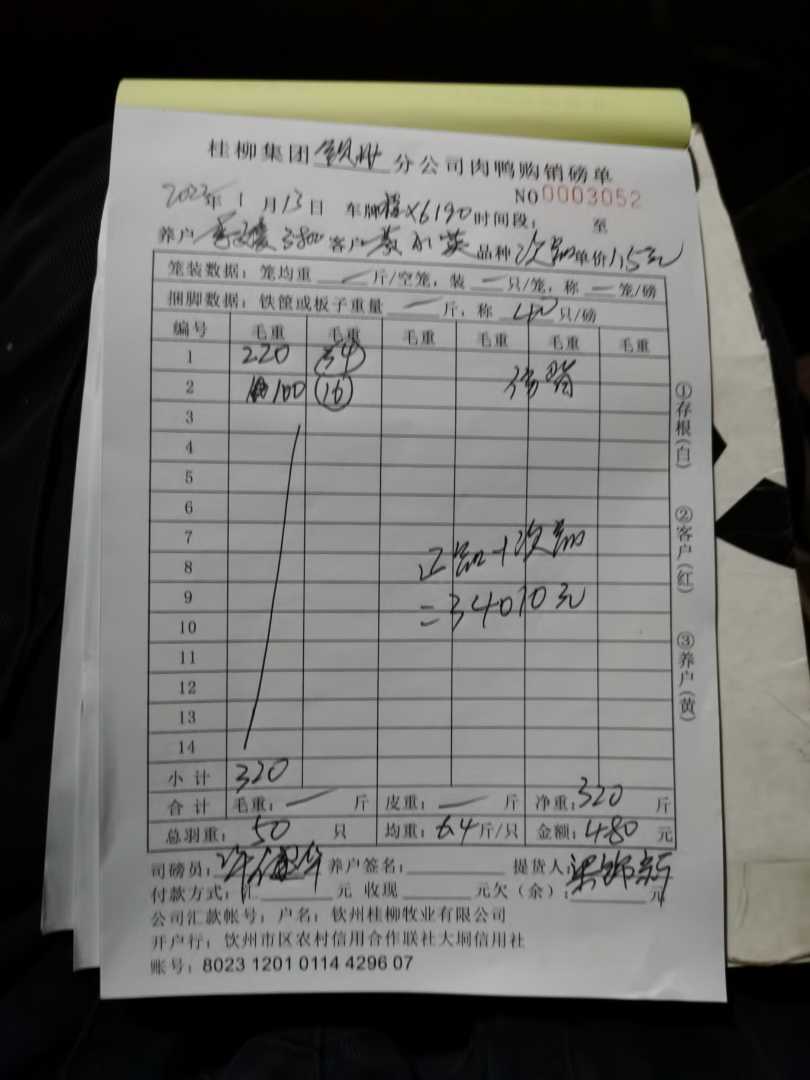 桂柳集团钦州分公司肉鸭购销磅单
NO 0003052
2023年1月13日 车牌桂X6190 时间段： 至
养户 客户 品种 次品 单价 1.5元
笼装数据：笼均重 — 斤/空笼，装 — 只/笼，称 — 笼/磅
捆脚数据：铁筐或板子重量 — 斤，称 40 只/磅
编号 毛重 毛重 毛重 毛重 毛重 毛重
1 220 34
2 100 16
3
4
5
6
7
正品+次品
8
9 =34070元
10
11
12
13
14
小计 320
合计 毛重：— 斤 皮重：— 斤 净重：320 斤
总羽重：50 只 均重：6.4斤/只 金额：480 元
司磅员： 养户签名： 提货人：
付款方式：汇 元 收现 元欠（余）： 元
公司汇款帐号：户名：钦州桂柳牧业有限公司
开户行：饮州市区农村信用合作联社大垌信用社
账号：8023 1201 0114 4296 07
①存根(白)
②客户(红)
③养户(黄)